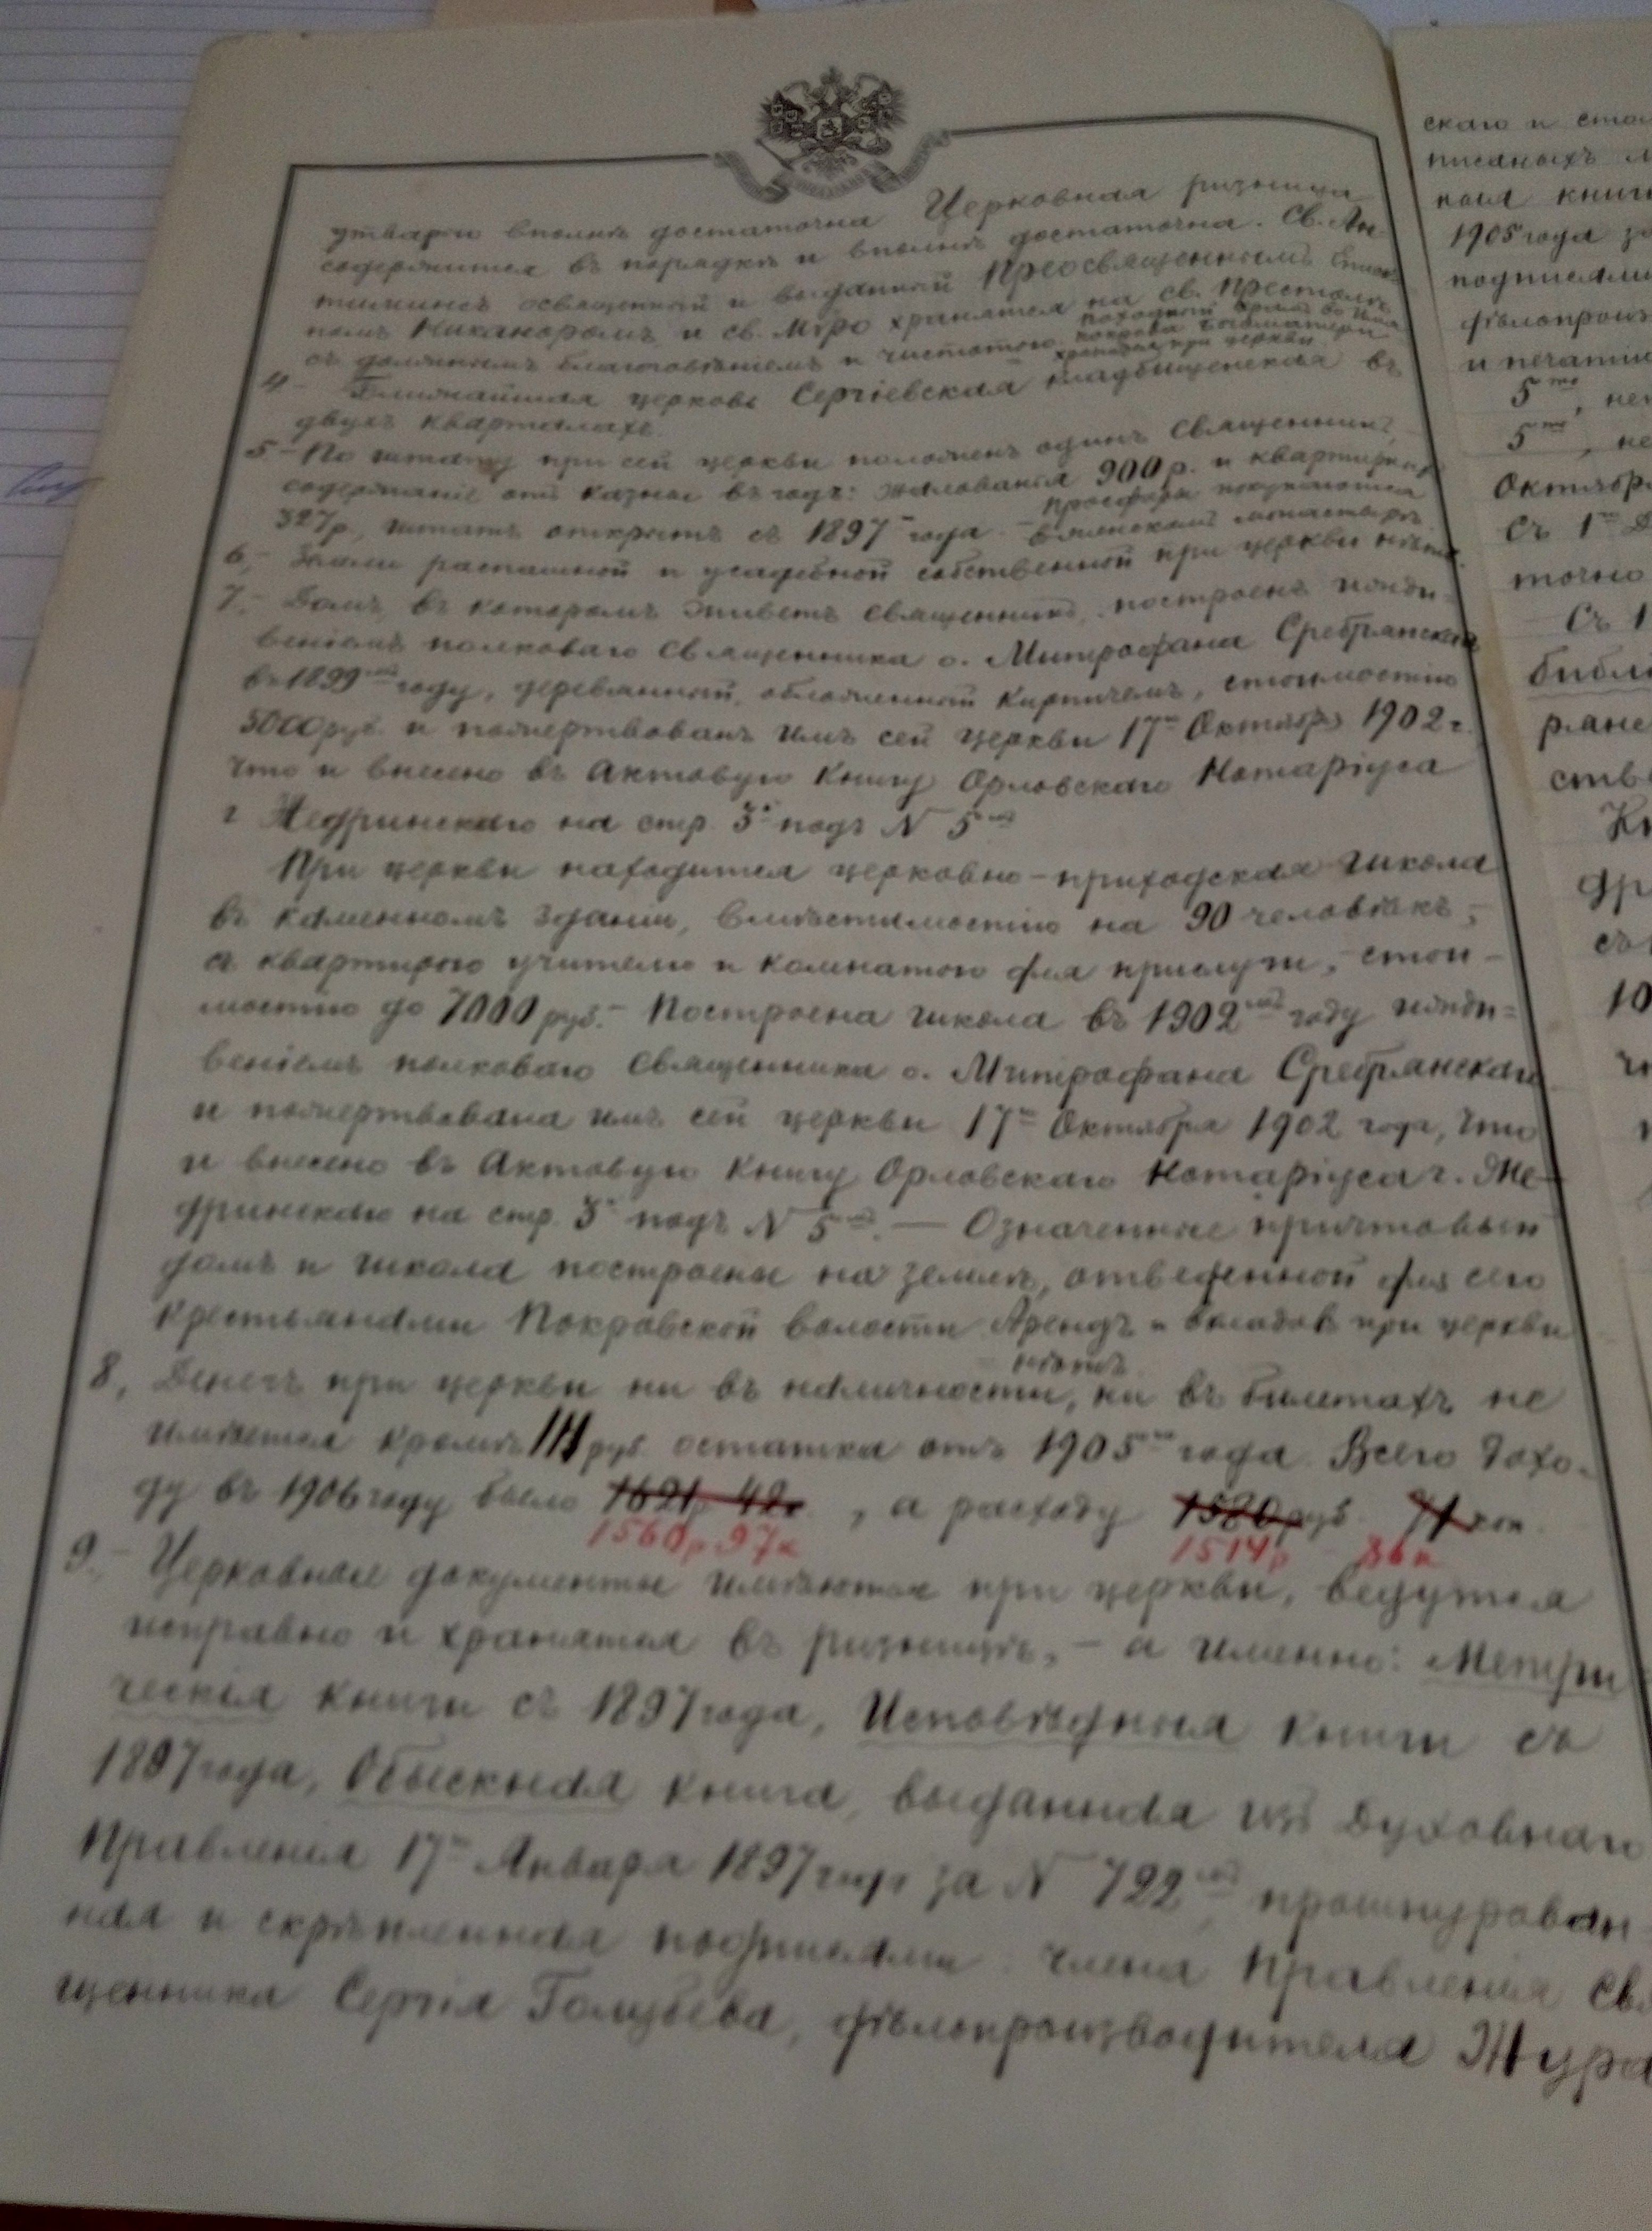 Церковная ризница
утварью вполнѣ достаточна
содержится въ порядкѣ и вполнѣ достаточна. Св. Ан-
тиминсъ освященный и выданный Преосвященнымъ Еписко-
помъ Никаноромъ и св. Мѵро хранятся на св. Престолѣ
съ должнымъ благоговѣніемъ и чистотою.
покрова Богоматери
хранится при церкви
4 Ближайшая церковь Сергіевская кладбищенская въ
двухъ кварталахъ.
5 - По штату при сей церкви положенъ одинъ Священникъ,
содержаніе отъ казны въ годъ: жалованія 900 р. и квартирныхъ
327 р., штатъ открытъ съ 1897 года -
Просфоры покупаются
монастырѣ
6,- Земли распашной и усадебной собственной при церкви нѣтъ.
7,- Домъ, въ которомъ живетъ священникъ, построенъ ижди-
веніемъ полковаго Священника о. Митрофана Сребрянскаго
въ 1899мъ году, деревянный, обложенный кирпичемъ, стоимостію
5000 руб. и пожертвованъ имъ сей церкви 17го Октября 1902 г.
что и внесено въ Актовую Книгу Орловскаго Нотаріуса
г. Жедринскаго на стр. 3й подъ N 5мъ
При церкви находится церковно-приходская школа
въ каменномъ зданіи, вмѣстимостію на 90 человѣкъ,-
съ квартирою учителю и комнатою для прислуги,- стои-
мостію до 7000 руб.- Построена школа въ 1902мъ году ижди=
веніемъ полковаго Священника о. Митрофана Сребрянскаго
и пожертвована имъ сей церкви 17го Октября 1902 года, что
и внесено въ Актовую Книгу Орловскаго Нотаріуса г. Же-
дринскаго на стр. 3й подъ N 5мъ. — Означенные причтовый
домъ и школа построены на землѣ, отведенной для сего
Крестьянами Покровской волости. Арендъ и при церкви
нѣтъ.
8, Денегъ при церкви ни въ наличности, ни въ билетахъ не
имѣется кромѣ 111 руб. остатка отъ 1905го года. Всего дохо-
ду въ 1906 году было 1621 р 42 к, а расходу 1580 руб 71 коп.
1560 р 97 к 1514 р 86 к
9.- Церковные документы имѣются при церкви, ведутся
исправно и хранятся въ ризницѣ,- а именно: Метри
ческія книги съ 1897 года, Исповѣдныя книги съ
1897 года, Обыскная книга, выданная изъ Духовнаго
Правленія 17го Января 1897 года за N 722мъ прошнурован
ная и скрѣпленная подписями члена Правленія Свя
щенника Сергія Голубева, дѣлопроизводителя Жура
скаго и
писаныхъ
ная книг
1905 года
подписями
дѣлопроиз
и печатью
5
5
Октября
съ 1го
точно
Съ 1
библі
ств
Кн
др
съ
10